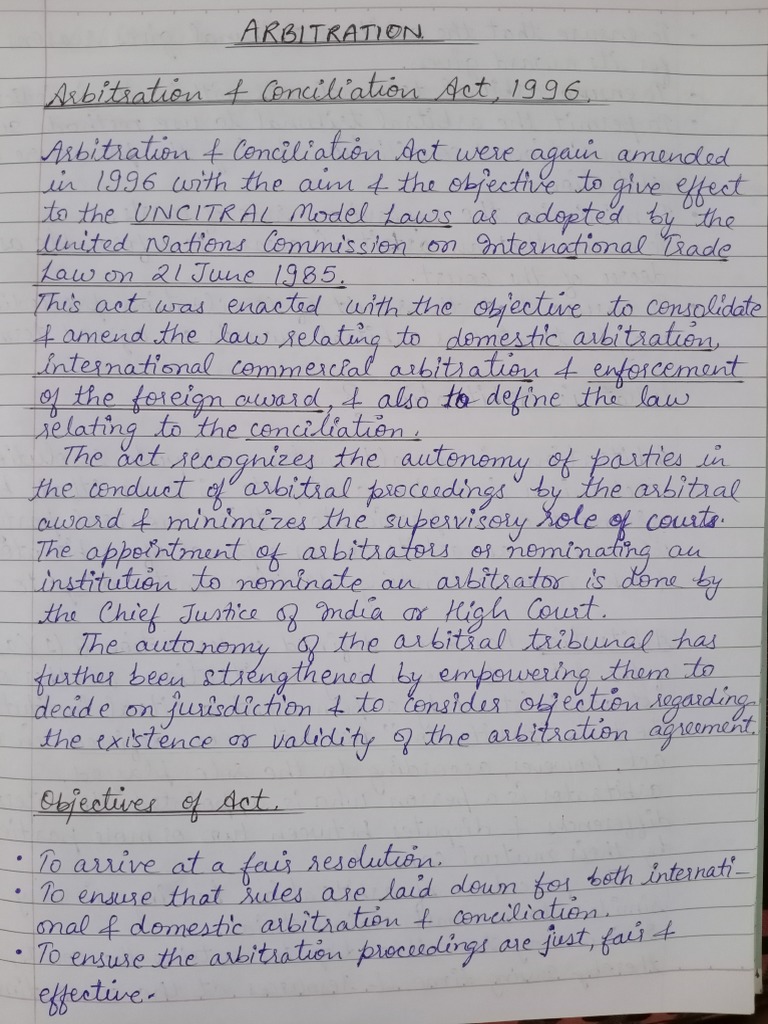 ARBITRATION
Arbitration & Conciliation Act, 1996.
Arbitration & Conciliation Act were again amended
in 1996 with the aim & the objective to give effect
to the UNCITRAL Model Laws as adopted by the
United Nations Commission on International Trade
Law on 21 June 1985.
This act was enacted with the objective to consolidate
& amend the law relating to domestic arbitration,
international commercial arbitration & enforcement
of the foreign award, & also to define the law
relating to the conciliation.
The act recognizes the autonomy of parties in
the conduct of arbitral proceedings by the arbitral
award & minimizes the supervisory role of courts.
The appointment of arbitrators or nominating an
institution to nominate an arbitrator is done by
the Chief Justice of India or High Court.
The autonomy of the arbitral tribunal has
further been strengthened by empowering them to
decide on jurisdiction & to consider objection regarding
the existence or validity of the arbitration agreement.
Objectives of Act.
• To arrive at a fair resolution.
• To ensure that rules are laid down for both internati-
onal & domestic arbitration & conciliation.
• To ensure the arbitration proceedings are just, fair &
effective.